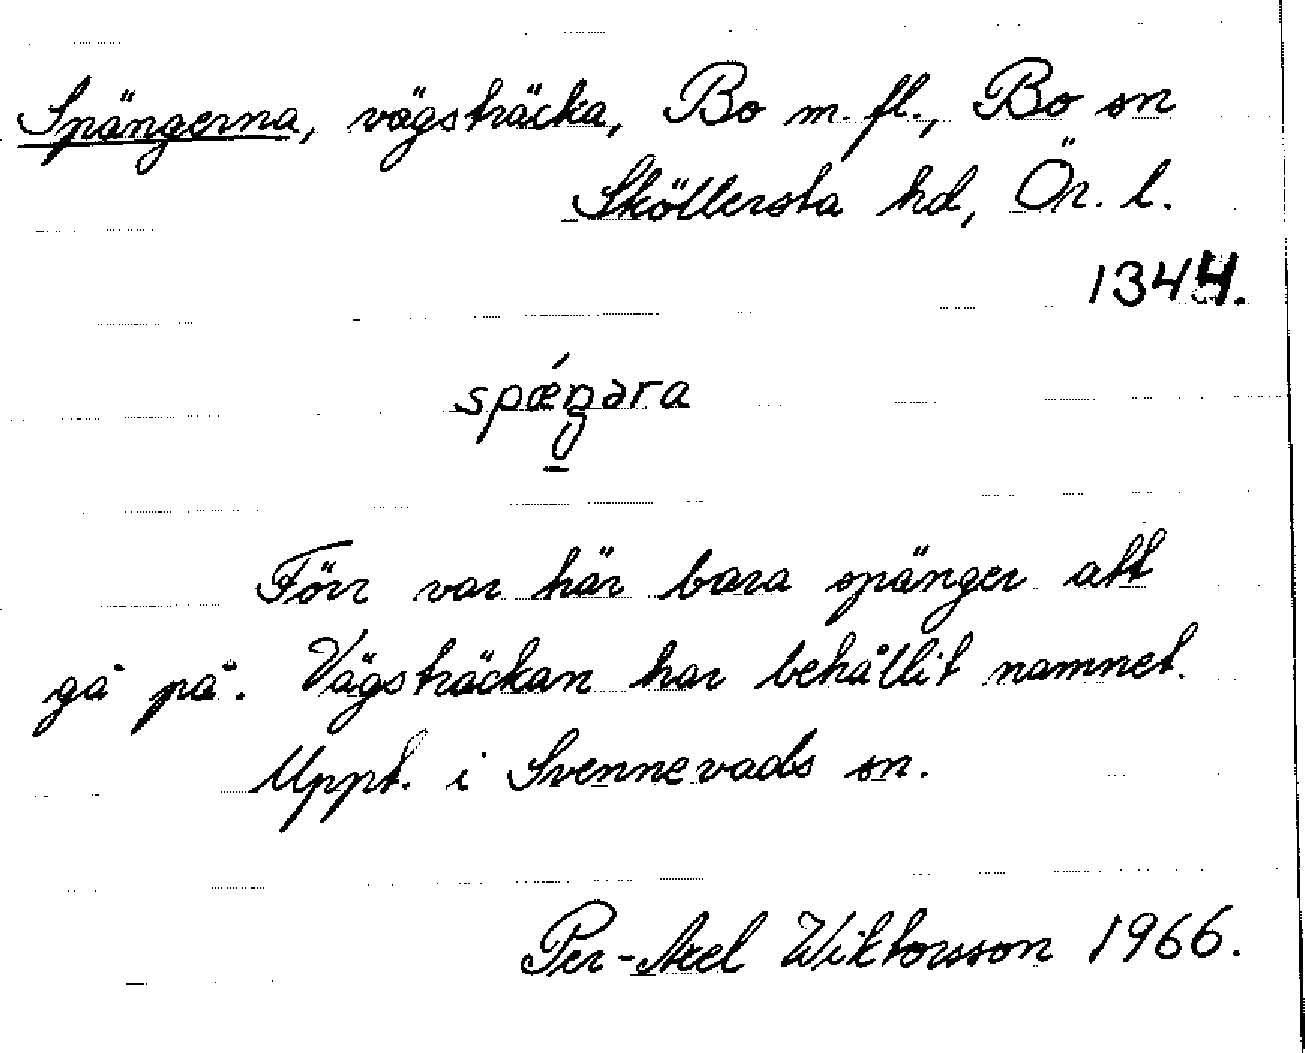 Spängerna, vägsträcka, Bo m. fl., Bo sn
Sköllersta hd, Ör. l.
1344.
spǽŋəra
Förr var här bara spänger att
gå på. Vägsträckan har behållit namnet.
Uppt. i Svennevads sn.
Per-Axel Wiktorsson 1966.